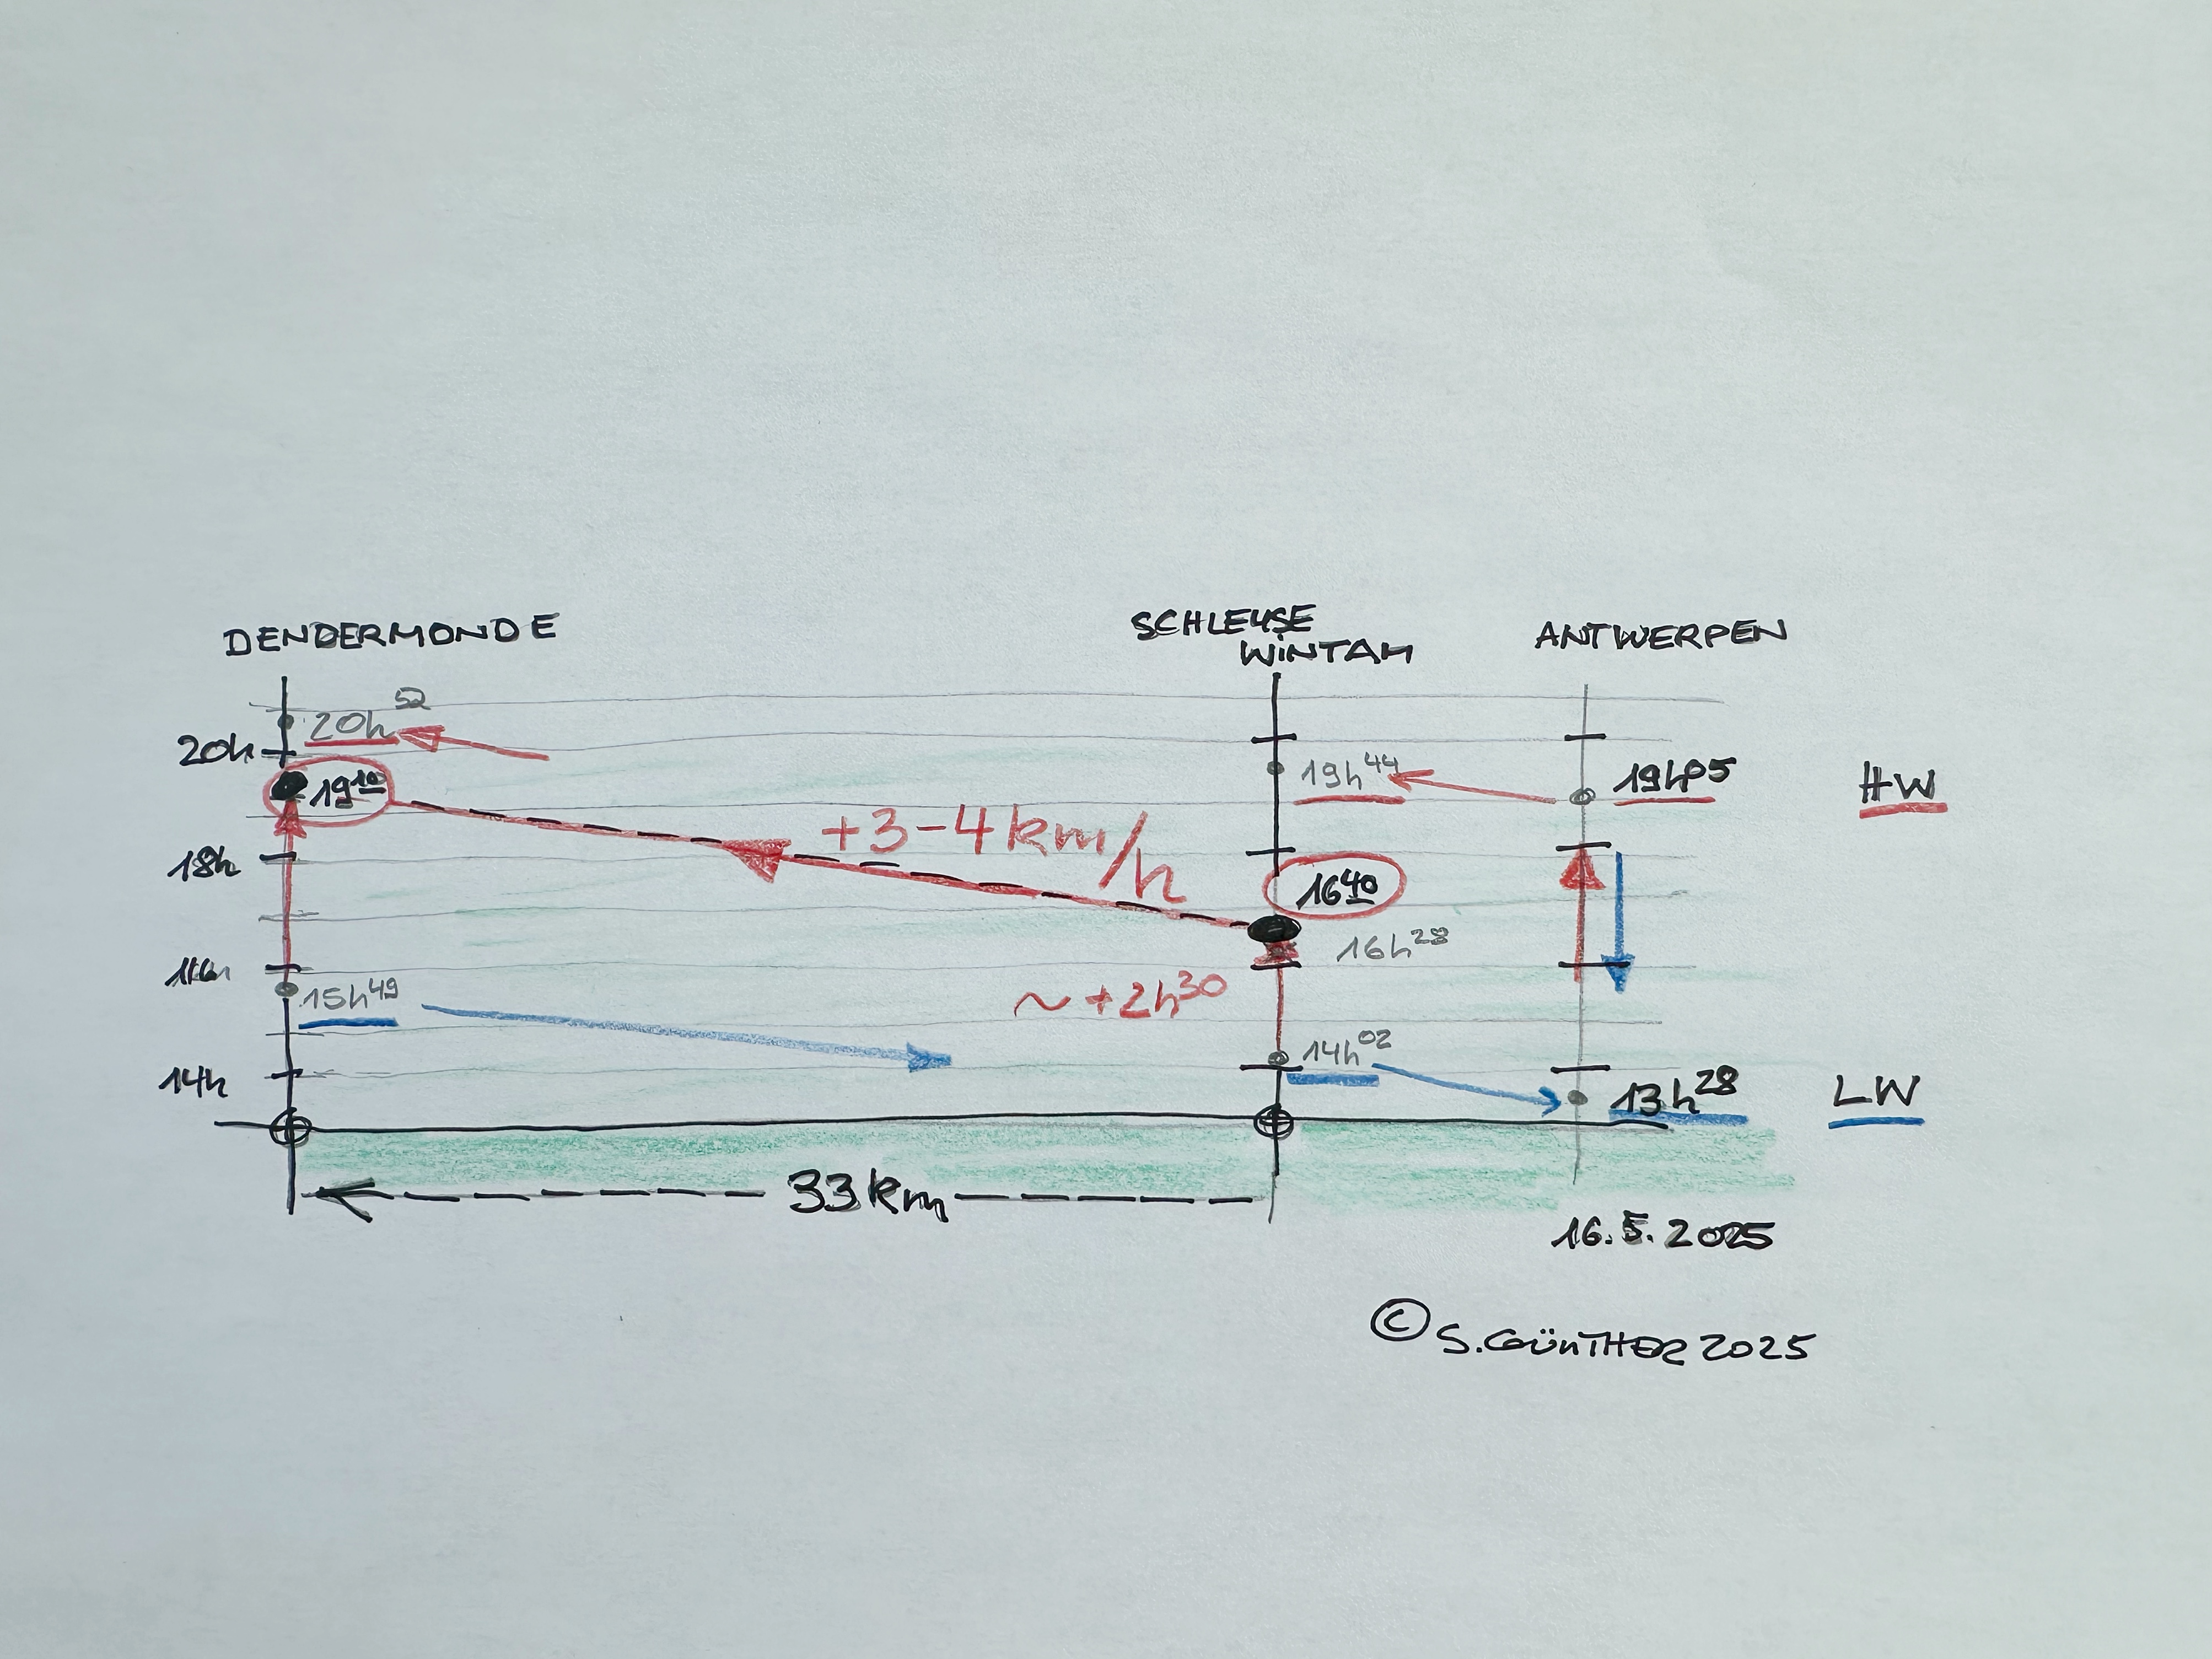 DENDERMONDE
SCHLEUSE
WINTAM
ANTWERPEN
20h52
20h
19h44
19h05
HW
1910
+3-4km/h
18h
1640
16h28
16h
15h49
~+2h30
14h02
14h
13h28
LW
33km
16.5.2025
© S.GÜNTHER 2025